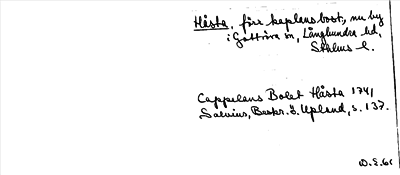 Håsta, förr kaplansbost, nu by
i Gottröra sn, Långhundra hd,
Sthlms l.
Cappelans Bolet Håsta 1741
Salvius, Beskr. ö. Upland, s. 137.